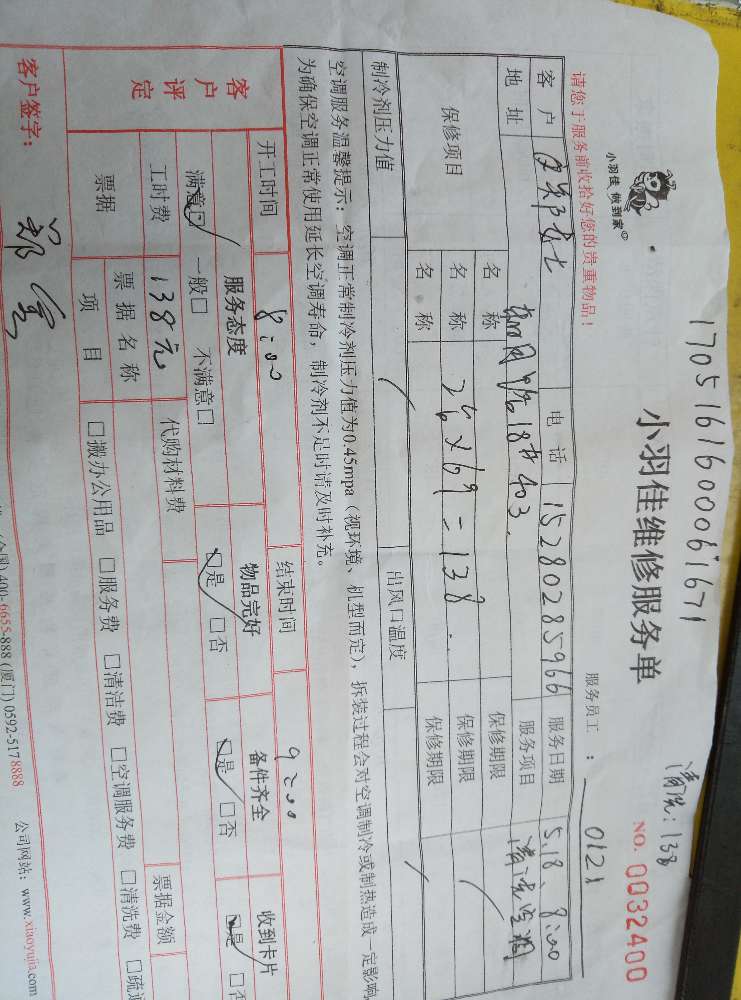 1705161600061671
清洗:138
小羽佳 做到家
小羽佳维修服务单
NO. 0032400
服务员工: 0121
请您于服务前收拾好您的贵重物品!
客户 郑女士 电话 15280285966 服务日期 5.18、8:00
地址 18#403. 服务项目 清洗空调
保修项目 名称 保修期限
名称 2台×69=138. 保修期限
名称 保修期限
制冷剂压力值 出风口温度
空调服务温馨提示:空调正常制冷剂压力值为0.45mpa(视环境、机型而定),拆装过程会对空调制冷或制热造成一定影响
为确保空调正常使用延长空调寿命,制冷剂不足时请及时补充。
开工时间 8:00 结束时间 9:00
客户评定 服务态度 物品完好 备件齐全 收到卡片
满意□ 一般□ 不满意□ □是 □否 □是 □否 □是 □否
工时费 138元 代购材料费
票据 票据名称 票据金额
项目 □搬办公用品 □服务费 □清洁费 □空调服务费 □清洗费 □疏通
客户签字:
(全国) 400-6655-888 (厦门) 0592-5178888 公司网站:www.xiaoyujia.com